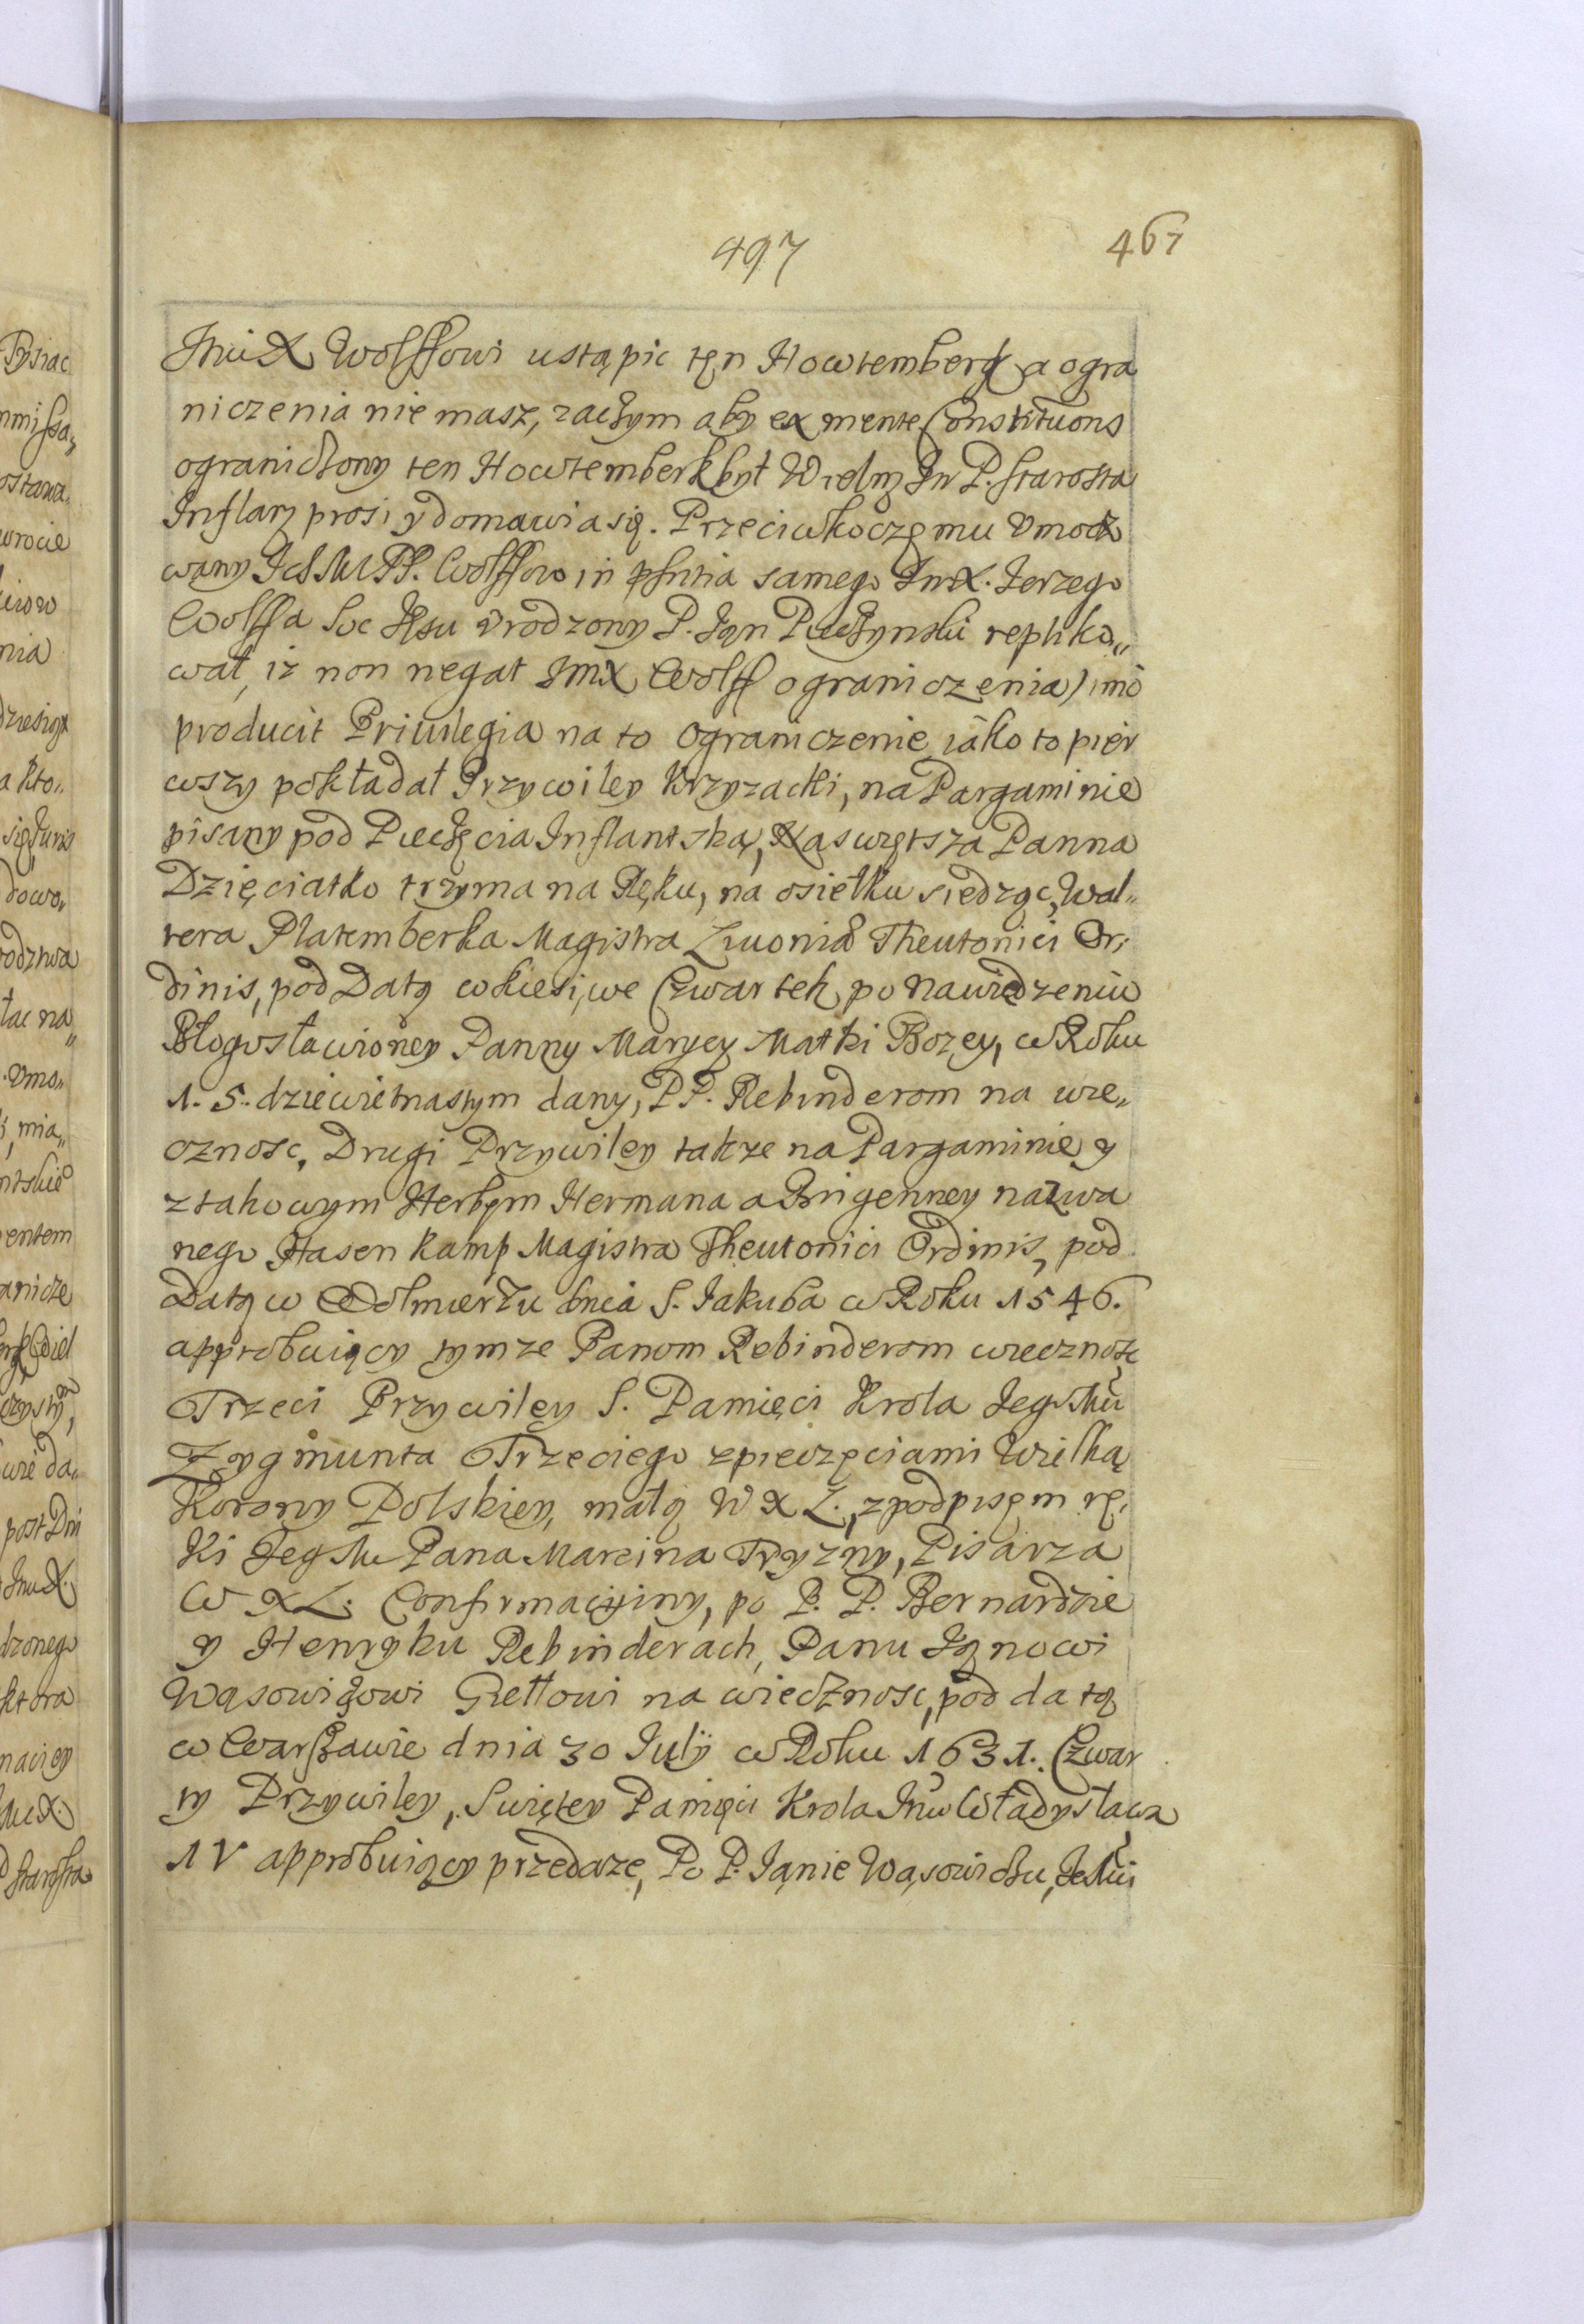 497
467
JmX Wolffowi ustąpic tęn Howtemberg a ogra
niczenia nie masz, zaczym aby ex mente Constitucions
ograniczony ten Howtemberk był Wielm Jm P. Starosta
Inflanz prosi y domawia się. Przeciwko czemu Vmoczo
wany JchM PP. Wolffow in pſntia samego JmX. Jerzego
Wolffa Soc Jesu Vrodzony P. Jąn Pieczynski repliko„
wał, iz non negat JmX Wolff ograniczenia, imo
producit Priuilegia na to ograniczenie iako to pier
wszy pokładał Przywiley Krzyzacki, na Pargaminie
pisany pod Pieczęcia Inflantską, Naswiętsza Panna
Dzięciatko trzyma na Ręku, na osiełku siedząc, Wal„
tera Platemberka Magistra Liuoniæ Theutonici Or,
dinis, pod Datą w Kiesi, we Czwartek po Nawiedzeniu
Błogosławioney Panny Maryey Matki Bozey, w Roku
1. 5. dziewietnastym dany, P P. Rebinderom na wie„
cznosc, Drugi Przywiley takze na Pargaminie y
z takowym Herbęm Hermana a Bringenney nazwa
nego Hasen kamp Magistra Theutonici Ordinis, pod
Datą w Wolmierzu dnia S. Jakuba w Roku 1546.
approbuiący tymze Panom Rebinderom wiecznosc
Trzeci Przywiley S. Pamięci Krola Jego Mci
Zygmunta Trzeciego z pieczęciami Wielką
Korony Polskiey, małą W X L., z podpisęm rę,
ki Jeg Mci Pana Marcina Tryzny, Pisarza
W X L. Confirmacyiny, po P. P. Bernardzie
y Henryku Rebinderach, Panu Jąnowi
Wąsowiczowi Giełłowi na wiecznosc, pod datą
w Warszawie dnia 30 July w Roku 1631. Czwar
ty Przywiley, Swiętey Pamięci Krola Jmci Władysława
IV approbuiący przedaze, Po P. Jąnie Wąsowiczu, JeMci